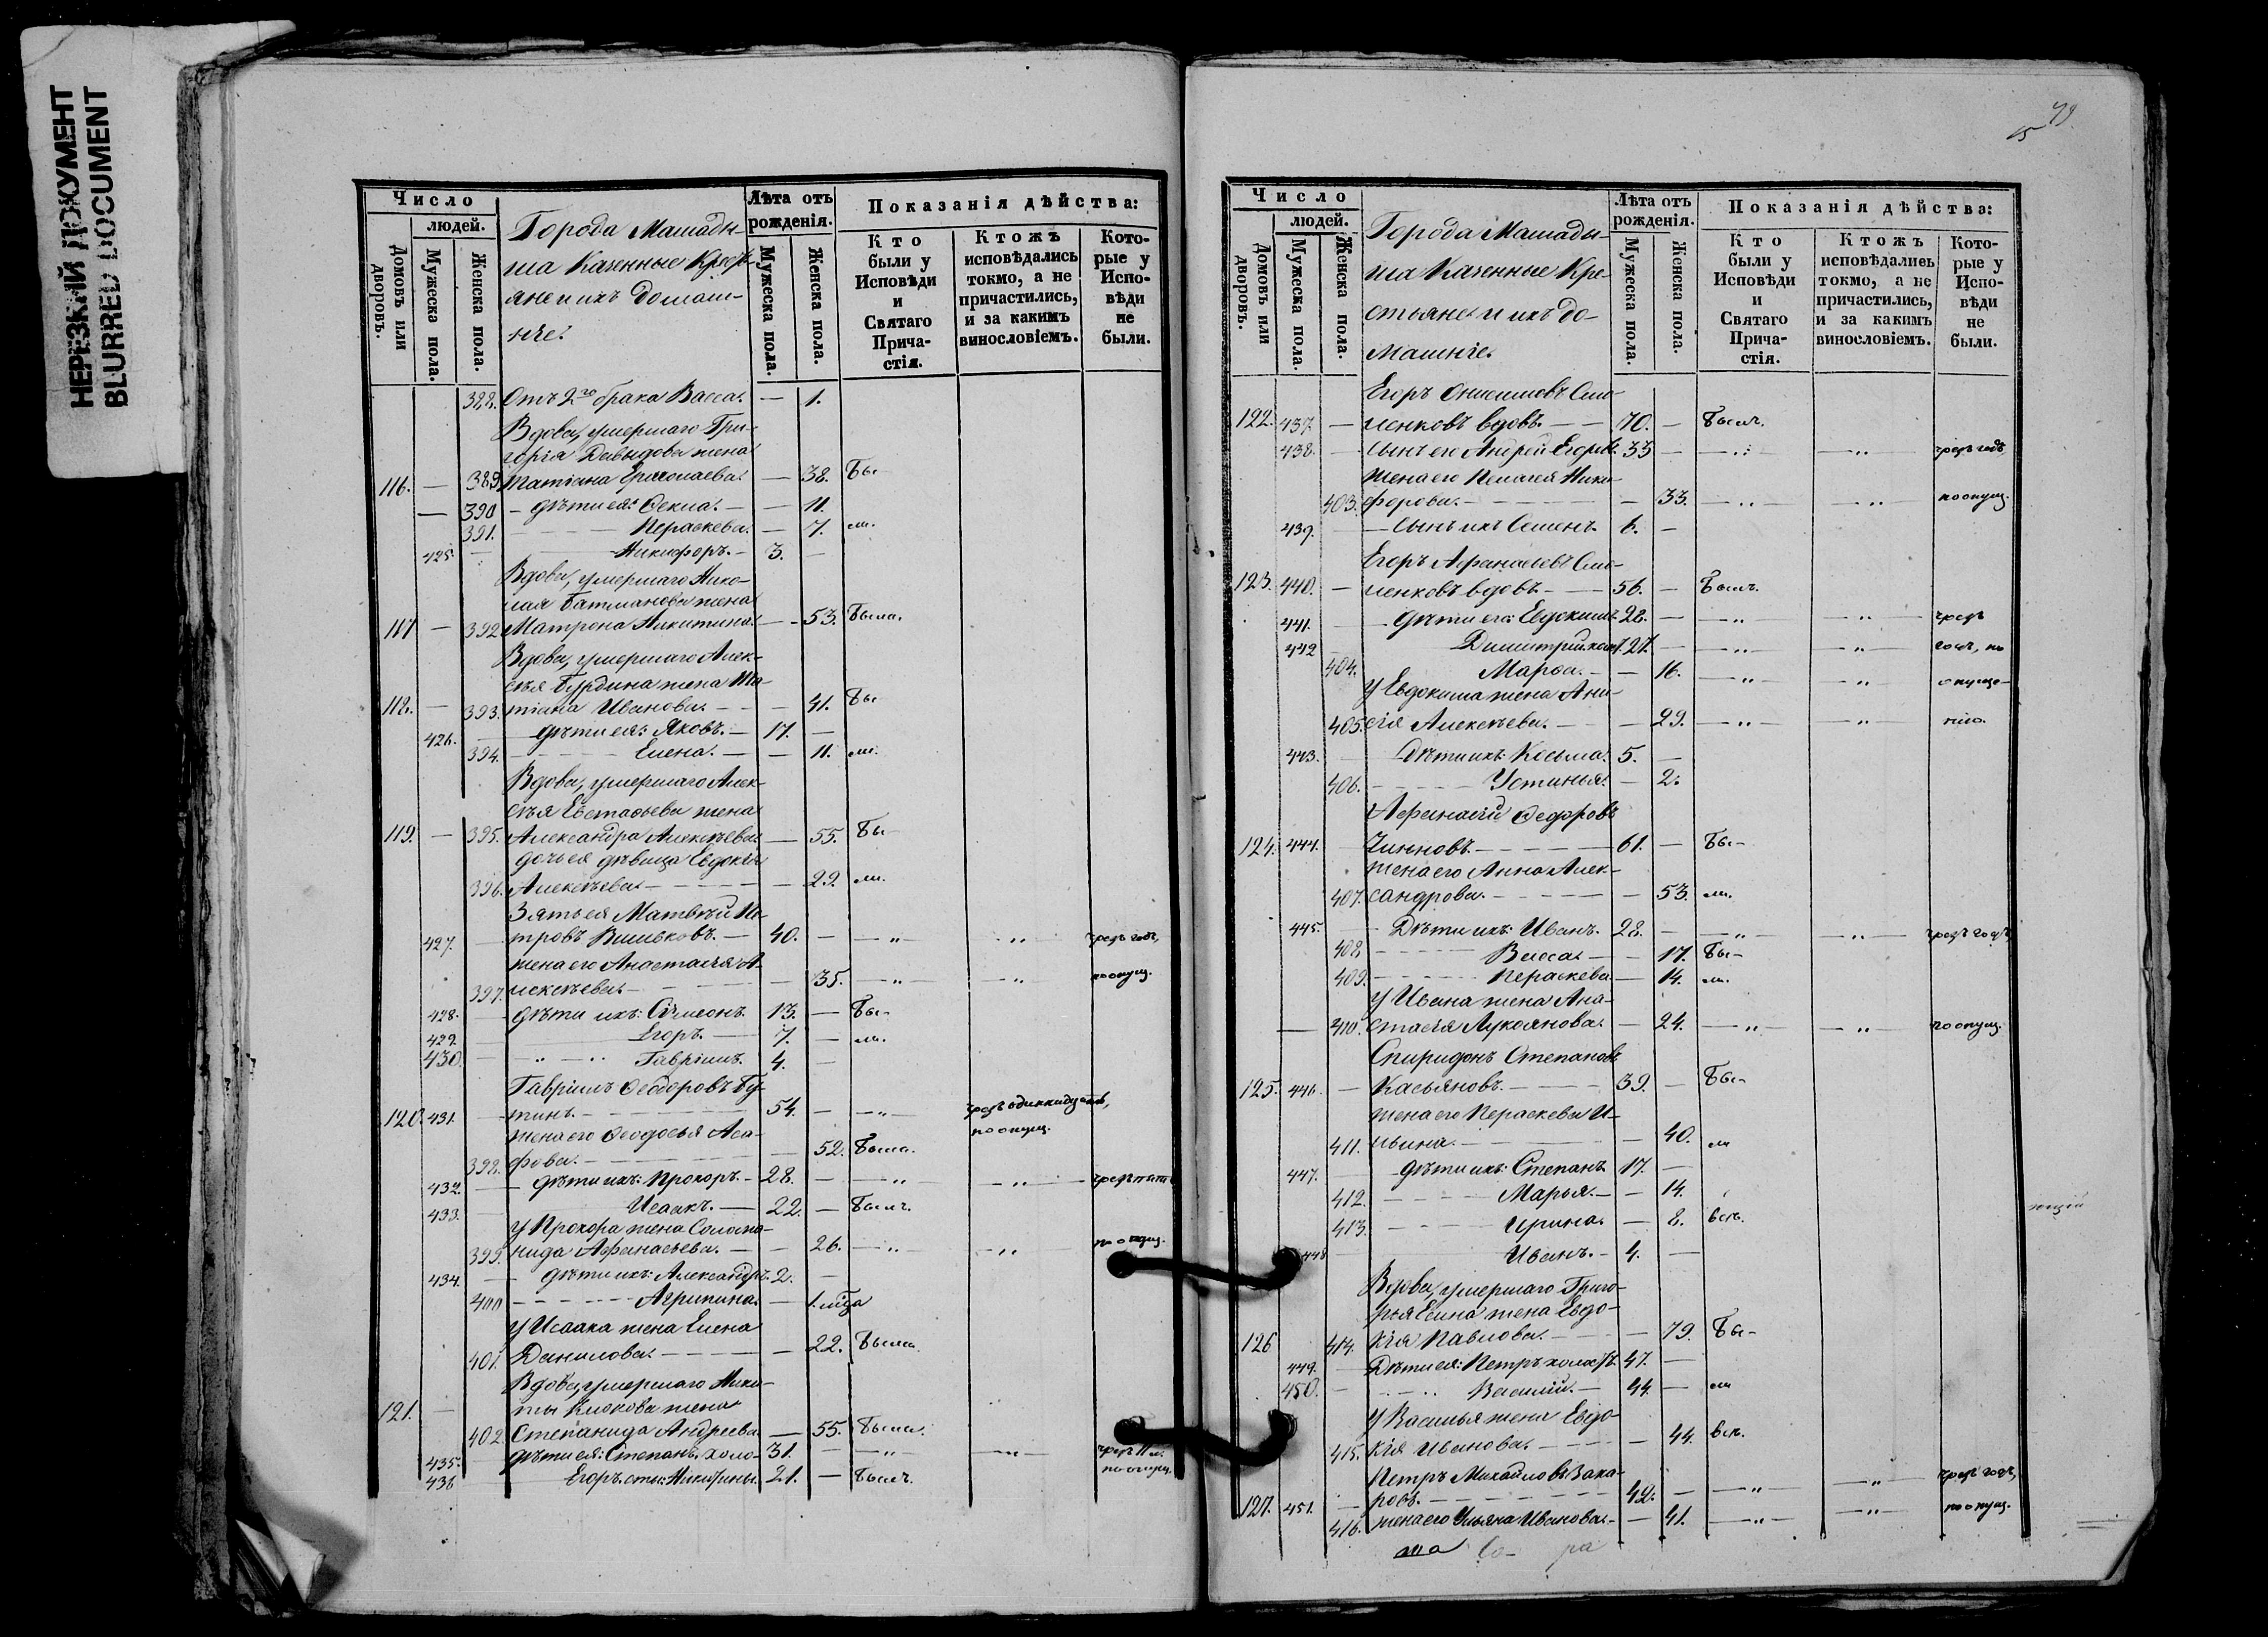 НЕРЕЗКИЙ ДОКУМЕНТ
BLURRED DOCUMENT
Число
людей.
Домовъ или дворовъ.
Мужеска пола.
Женска пола.
Города Мамады-
ша Казенные Кресть-
яне и ихъ домаш-
ніе.
Лѣта отъ рожденія.
Мужеска пола.
Женска пола.
Показанія дѣйства:
Кто были у Исповѣди и Святаго Прича-стія.
Ктожъ исповѣдались токмо, а не причастились, и за какимъ винословіемъ.
Кото-рые у Испо-вѣди не были.
388. Отъ 2го брака Васса. — 1.
Вдова, умершаго Гри-
горія Давыдова жена
116. — 389. Татіана Ермолаева. — 38. Бы-
— 390 - дѣти ея: Ѳекла. — 11.
391. Параскева. — 7. ли.
425. — Никифоръ. — 3. —
Вдова, умершаго Нико-
лая Батманова жена
117 — 392. Матрона Никитина. — 53. Была.
Вдова, умершаго Алек-
сѣя Бурдина жена Та-
118. — 393. тіана Иванова. — 41. Бы
426. — дѣти ея: Яковъ. — 17. —
394. Елена. — 11. ли.
Вдова, умершаго Алек-
сѣя Евстафьева жена
119. — 395. Александра Алексѣева. — 55. Бы-
дочь ея дѣвица Евдокія
396. Алексѣева. — 22. ли.
Зять ея Матвѣй Пе-
427. — тровъ — 40. — — „ — „ — чрезъ годъ,
жена его Анастасія А-
397. лексѣева. — 35. — „ — — „ по опущ.
428. — дѣти ихъ: Симеонъ. 13. — Бы-
429. Егоръ. — 7. — ли.
430. — „ — „ Гавріилъ. 4. —
Гавріилъ Ѳеодоровъ Бу-
120. 431. — тинъ. — 54. — — „ чрезъ
по опущ.
жена его Ѳеодосья Ага-
398. фова. — 52. Была.
432. — дѣти ихъ: Прохоръ. — 28. — — „ — „ — чрезъ
433. Исаакъ. — 22. — Былъ.
У Прохора жена Солома-
399. нида Афанасьева. — — 26. — „ — „ по опущ.
434. — дѣти ихъ: Александръ. 2. —
400 — Агрипина. — 1. года
У Исаака жена Елена
401. Данилова. — 22. Была.
Вдова, умершаго Ники-
121. — ты Клюкова жена
402. Степанида Андреева. — 55. Была.
435. дѣти ея: Степанъ. холо- 31. — — „ — „ чрезъ 11 л.
436 Егоръ. 21. — Былъ. по опущ.
79
15
Число
людей.
Домовъ или дворовъ.
Мужеска пола.
Женска пола.
Города Мамады-
ша Казенные Кре-
стьяне и ихъ до-
машніе.
Лѣта отъ рожденія.
Мужеска пола.
Женска пола.
Показанія дѣйства:
Кто были у Исповѣди и Святаго Прича-стія.
Ктожъ исповѣдались токмо, а не причастились, и за какимъ винословіемъ.
Кото-рые у Испо-вѣди не были.
Егоръ Онисимовъ Смо-
122. 437. — ленковъ вдовъ. — 70. — Былъ.
438. — сынъ его Андрей Егоровъ. 35 — — „ — „ чрезъ годъ
жена его Пелагея Ники-
403. форова. — 33. — „ — „ — по опущ.
439. — сынъ ихъ Семенъ. 6. —
Егоръ Афанасьевъ Смо-
123. 440. — ленковъ вдовъ. — 56. — Былъ.
441. — дѣти его: Евдокимъ. 28. — — „ — „ — чрезъ
442 — Димитрій. холост. 21. — — „ — „ годъ, по
404. Марфа. — 16. — „ — „ опуще-
У Евдокима жена Ани-
405. сія Алексѣева. — 29. — „ — „ нію.
443. — Дѣти ихъ: Косьма. 5. —
406. Устинья. — 2.
Афанасій Ѳедоровъ
124. 444. — 61. — Бы-
жена его Анна Алек-
407. сандрова. — 53. ли.
445. — Дѣти ихъ: Иванъ. 28. — — „ — „ — чрезъ годъ
408. Васса. — 17. Бы-
409. Параскева. — 14. ли.
У Ивана жена Ана-
— 410. стасія Лукоянова. — 24. — „ — — „ по опущ.
Спиридонъ Степановъ
125. 446. — Касьяновъ. — 39. — Бы-
жена его Параскева И-
411. льина. — 40. ли
447. дѣти ихъ: Степанъ 17. —
412. Марья. — 14.
413. Ирина. — 8. всѣ.
448 Иванъ. — 4. —
Вдова, умершаго Григо-
рья Елина жена Евдо-
126 414. кія Павлова. — 79. Бы-
449. — Дѣти ея: Петръ холостъ. 47. —
450. — Василій. — 44. — ли
У Василья жена Евдо-
415. кія Иванова. — 44. всѣ.
Петръ Михайловъ Заха-
127. 451. — ровъ. — 42. — — „ — „ чрезъ годъ,
416. жена его Ульяна Иванова. — 41. — „ — „ по опущ.